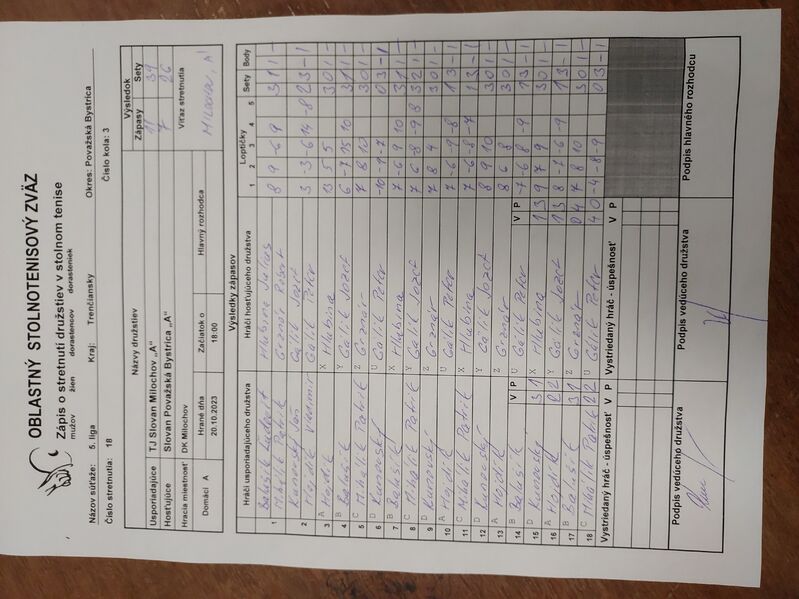 OBLASTNÝ STOLNOTENISOVÝ ZVÄZ
Zápis o stretnutí družstiev v stolnom tenise
mužov žien dorastencov dorasteniek
Názov súťaže: 5. liga Kraj: Trenčiansky Okres: Považská Bystrica
Číslo stretnutia: 18 Číslo kola: 3
Názvy družstiev Výsledok
Zápasy Sety
Usporiadajúce TJ Slovan Milochov „A" 11 39
Hosťujúce Slovan Považská Bystrica „A" 7 26
Hracia miestnosť DK Milochov Víťaz stretnutia
Domáci A Hrané dňa Začiatok o Hlavný rozhodca
20.10.2023 18:00 Milochov „A"
Výsledky zápasov
Hráči usporiadajúceho družstva Hráči hosťujúceho družstva Loptičky Sety Body
1 2 3 4 5
1 Balušík Hlubina Július 8 9 -6 9 3 1 1 -
Mihálik Patrik Grznár
2 Kunovský Gálik Jozef 3 -3 -6 14 -8 2 3 - 1
Hojdík Vladimír Gálik Peter
3 A Hojdík X Hlubina 13 5 5 3 0 1 -
4 B Balušík Y Gálik Jozef 6 -7 15 10 3 1 1 -
5 C Mihálik Patrik Z Grznár 7 8 10 3 0 1 -
6 D Kunovský U Gálik Peter -10 -7 -7 0 3 - 1
7 B Balušík X Hlubina 7 -6 9 10 3 1 1 -
8 C Mihálik Patrik Y Gálik Jozef 7 6 -8 -9 8 3 2 1 -
9 D Kunovský Z Grznár 7 8 4 3 0 1 -
10 A Hojdík U Gálik Peter 7 -6 -9 -8 1 3 - 1
11 C Mihálik Patrik X Hlubina 7 -6 -8 -7 1 3 - 1
12 D Kunovský Y Gálik Jozef 8 9 10 3 0 1 -
13 A Hojdík Z Grznár 8 6 8 3 0 1 -
14 B Balušík V P U Gálik Peter V P -7 -6 8 -9 1 3 - 1
15 D Kunovský 3 1 X Hlubina 1 3 9 7 9 3 0 1 -
16 A Hojdík 2 2 Y Gálik Jozef 1 3 8 -7 -6 -9 1 3 - 1
17 B Balušík 3 1 Z Grznár 0 4 7 8 10 3 0 1 -
18 C Mihálik Patrik 2 2 U Gálik Peter 4 0 -4 -8 -9 0 3 - 1
Vystriedaný hráč - úspešnosť V P Vystriedaný hráč - úspešnosť V P
Podpis vedúceho družstva Podpis vedúceho družstva Podpis hlavného rozhodcu